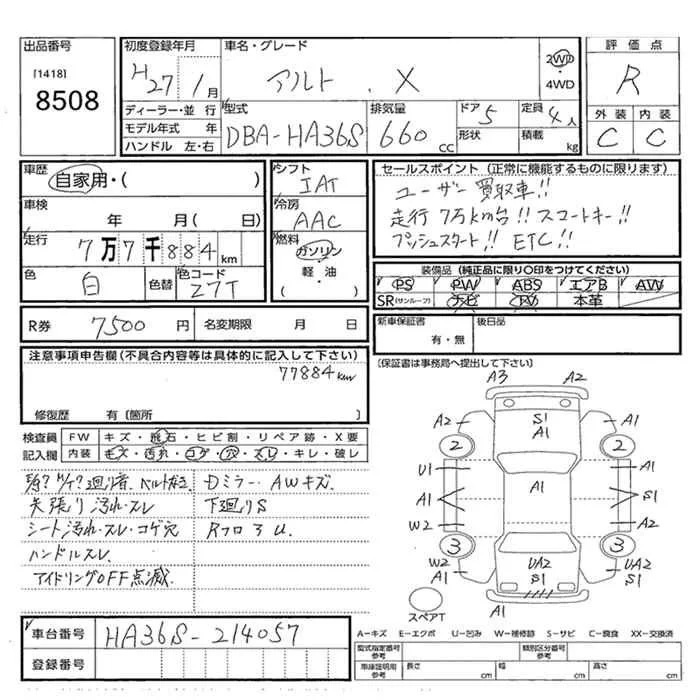 出品番号
[1418]
8508
初度登録年月
H27年 1月
車名・グレード
アルト . X
2WD・
4WD
評価点
R
外装 内装
C C
ディーラー・並行
モデル年式 年
ハンドル 左・右
型式
DBA-HA36S
排気量
660 cc
ドア 5
形状
定員 4人
積載 kg
車歴
自家用・( )
車検
年 月 ( 日)
走行
7万7千884 km
色
白
色替
色コード
Z7T
シフト
IAT
冷房
AAC
燃料
ガソリン
・
軽・油
( )
セールスポイント (正常に機能するものに限ります)
ユーザー買取車!!
走行7万km台!! スマートキー!!
プッシュスタート!! ETC!!
装備品 (純正品に限り〇印をつけてください)
PS PW ABS エアB AW
SR(サンルーフ) ナビ TV 本革
R券 7500 円
名変期限 月 日
新車保証書
有・無
後日品
[保証書は事務局へ提出して下さい]
注意事項申告欄(不具合内容等は具体的に記入して下さい)
77884km
修復歴 有〔箇所 〕
検査員
記入欄
FW キズ・飛石・ヒビ割・リペア跡・X要
内装 キズ・汚れ・コゲ・穴・スレ・キレ・破レ
Dミラー、AWキズ.
天張り汚れ・スレ
下廻りS
シート汚れ・スレ・コゲ穴
Rフロアu.
ハンドルスレ.
アイドリングOFF点滅.
A3 A2
A2 S1 A1 A1
2 2
U1 A1 A1
A1 S1
W2 A2
3 3
W2 UA2 UA2
A1 S1 S1
スペアT
A1
車台番号
HA36S-214057
登録番号
A−キズ E−エクボ U−凹み W−補修跡 S−サビ C−腐食 XX−交換済
型式指定番号
参考
類別区分番号
参考
車庫証明用
参考
長さ cm
幅 cm
高さ cm